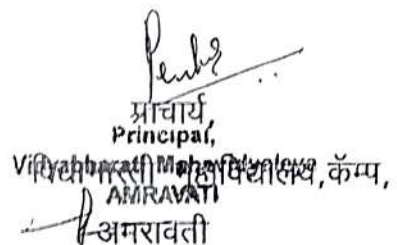 प्राचार्य,
Principal,
Vidyabharati Mahavidyalaya
विद्याभारती महाविद्यालय, कॅम्प,
AMRAVATI
अमरावती